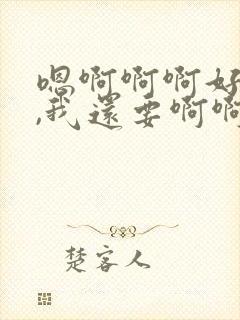 嗯啊啊啊好
,我还要啊啊
楚客人